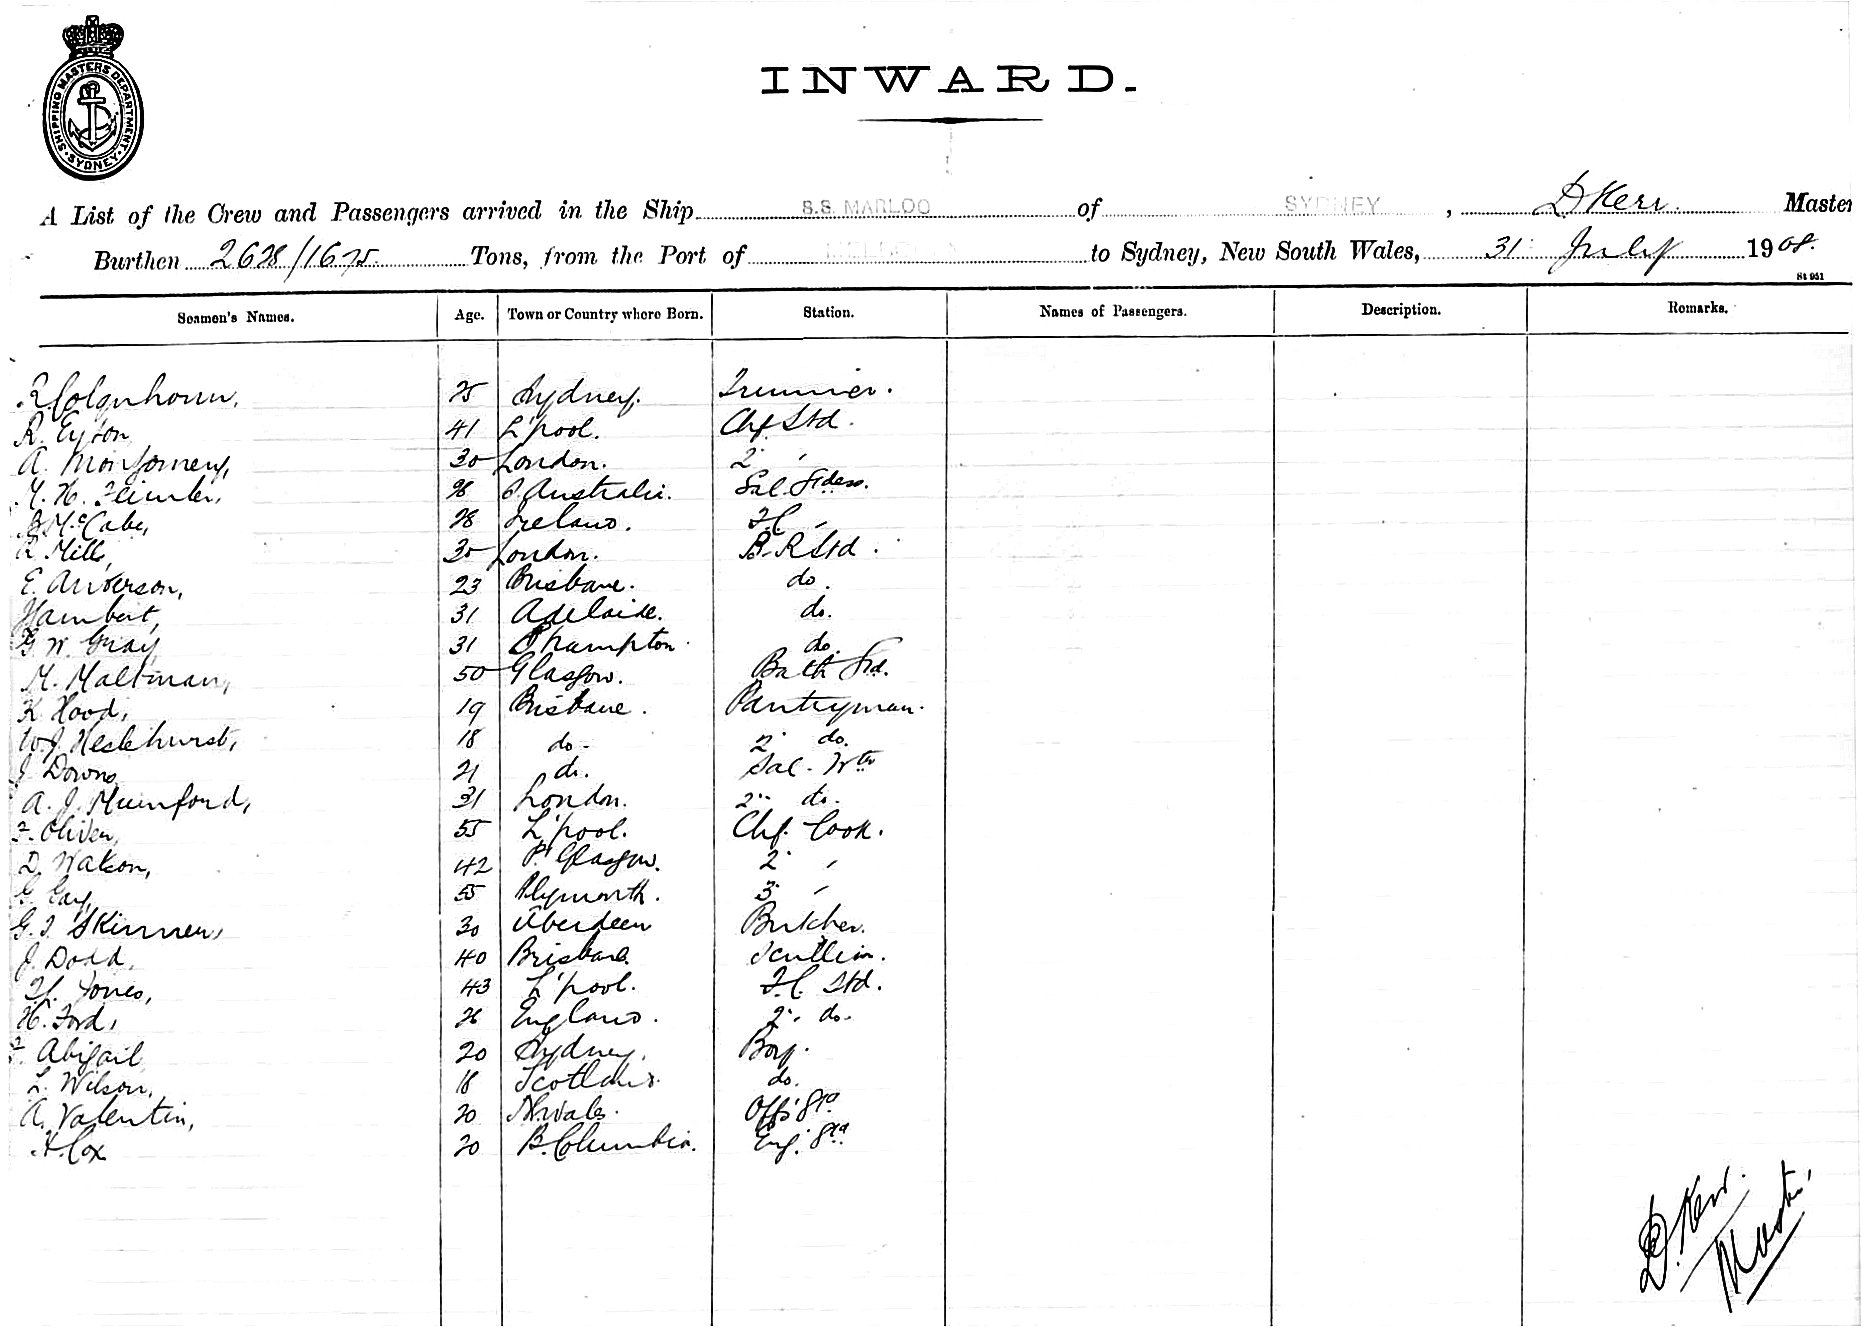 SHIPPING MASTERS DEPARTMENT. SYDNEY
INWARD.
A List of the Crew and Passengers arrived in the Ship S.S. MARLOO of SYDNEY, D Kerr. Master
Burthen 2628/1675 Tons, from the Port of to Sydney, New South Wales, 31 July 1908.
St 951
Seamen's Names. Age. Town or Country where Born. Station. Names of Passengers. Description. Remarks.
R Colquhoun, 25 Sydney. Trimmer.
R. Eyton, 41 L'pool. Chf. Std.
A. Montgomery, 30 London. 2 "
M. H. 28 S. Australia. Sal. Stdess.
McCabe, 28 Ireland. F.C. "
R Mills, 30 London. B. R Std.
E. Anderson, 23 Brisbane. do.
31 Adelaide. do.
G. W. Gray 31 S'hampton. do.
M. Maltman, 50 Glasgow. Bath Std.
K. Hood, 19 Brisbane. Pantryman.
W. J. Heslehurst, 18 do. 2 do.
J. Downs 21 do. Sal. Wtr
A. J. Mumford, 31 London. 2" do.
F. Oliver, 55 L'pool. Chf. Cook.
D. Watson, 42 P. Glasgow. 2 "
G. Gay, 55 Plymouth. 3 "
G. J. Skinner, 30 Aberdeen Butcher.
J. Dodd, 40 Brisbane. Scullion.
H. Jones, 43 L'pool. F.C. Std.
H. Ford, 26 England. 2". do.
F. Abigail 20 Sydney. Boy.
L. Wilson, 18 Scotland. do.
A. Valentin, 20 N. Wales. Offs' Std
H. Cox 20 B. Columbia. Eng. Std
D. Kerr.
Master.